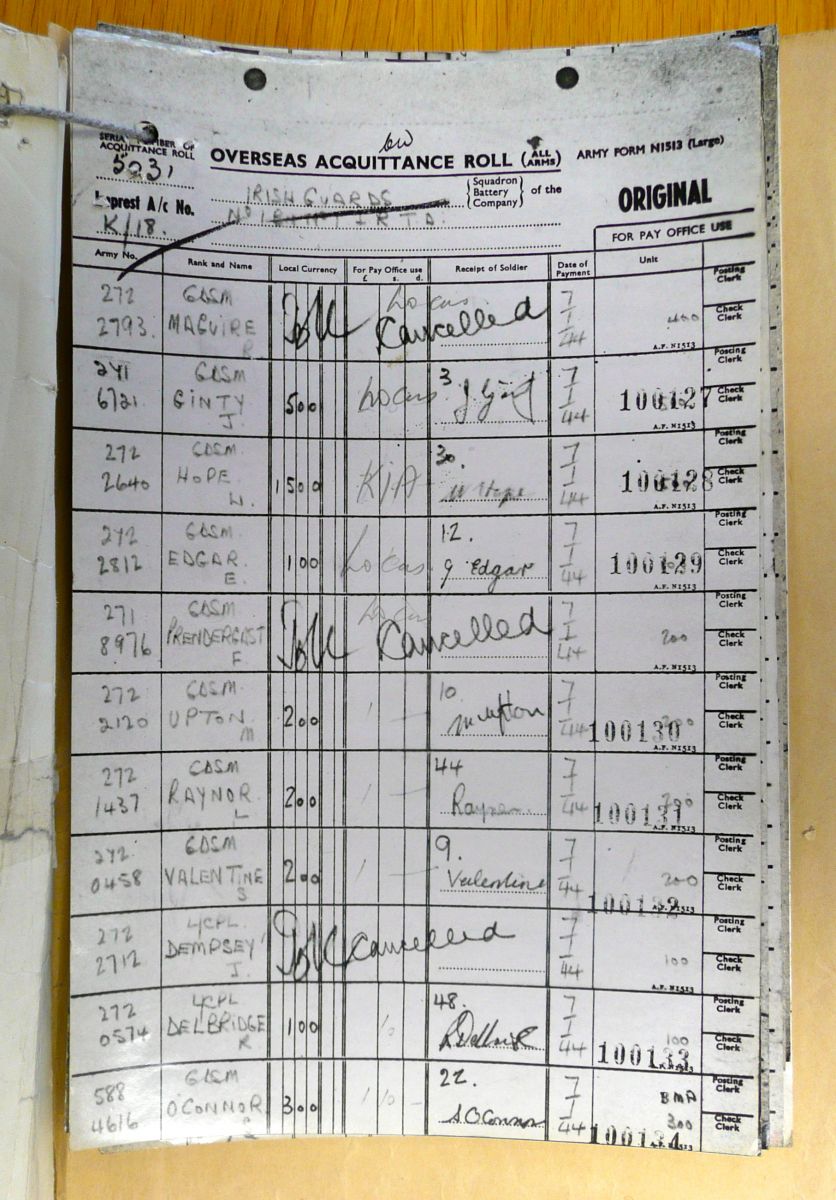 SERIAL NUMBER OF
ACQUITTANCE ROLL
5031
OVERSEAS ACQUITTANCE ROLL (ALL ARMS)
ARMY FORM N1513 (Large)
Imprest A/c No.
K/18.
IRISH GUARDS
No 1
Squadron
Battery
Company
of the
ORIGINAL
FOR PAY OFFICE USE
Army No.
Rank and Name
Local Currency
For Pay Office use
£ s. d.
Receipt of Soldier
Date of Payment
Unit
Posting Clerk
272 2793.
GDSM MAGUIRE R
Cancelled
7/1/44
400
Check Clerk
A.F. N1513
Posting Clerk
241 6721
GDSM GINTY J.
500
3
7/1/44
100127
Check Clerk
A.F. N1513
Posting Clerk
272 2640
GDSM HOPE W.
1500
KIA
30.
W Hope
7/1/44
100128
Check Clerk
A.F. N1513
Posting Clerk
272 2812
GDSM. EDGAR E.
100
12.
Edgar
7/1/44
100129
Check Clerk
A.F. N1513
Posting Clerk
271 8976
GDSM PRENDERGAST F
Cancelled
7/1/44
200
Check Clerk
A.F. N1513
Posting Clerk
272 2120
GDSM. UPTON M
200
1 —
10
M Upton
7/1/44
100130
Check Clerk
A.F. N1513
Posting Clerk
272 1437
GDSM RAYNOR L
200
1 —
44
Raynor
7/1/44
200
100131
Check Clerk
A.F. N1513
Posting Clerk
272. 0458
GDSM VALENTINE S
200
1 —
9.
Valentine
7/1/44
200
100132
Check Clerk
A.F. N1513
Posting Clerk
272 2712
L/CPL. DEMPSEY J.
Cancelled
7/1/44
100
Check Clerk
A.F. N1513
Posting Clerk
272 0574
L/CPL DELBRIDGE R.
100
10
48.
7/1/44
100
100133
Check Clerk
Posting Clerk
588 4616
GDSM O'CONNOR
300
1 10 —
22.
S O'Connor
7/1/44
BMA
300
100134
Check Clerk